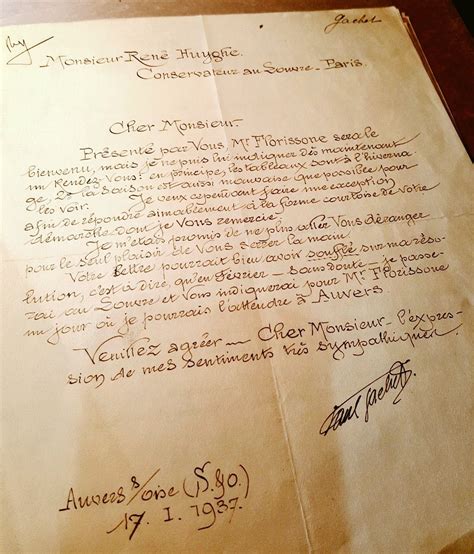 Gachet
Monsieur René Huyghe.
Conservateur au Louvre - Paris.
Cher Monsieur -
Présenté par Vous, Mr Florissone serait le
bienvenu, mais je ne puis lui indiquer dès maintenant
un Rendez-Vous: en principe, les tableaux sont à l'hiverna-
ge, et la saison est aussi mauvaise que possible pour
les voir. Je veux cependant faire une exception
afin de répondre aimablement à la forme courtoise de Votre
démarche dont je Vous remercie.
Je m'étais promis de ne pas aller Vous déranger
pour le seul plaisir de Vous serrer la main.
Votre lettre pourrait bien avoir soufflé sur ma réso-
lution, c'est à dire, qu'en Février - sans doute - je passe-
rai au Louvre et Vous indiquerai pour Mr Florissone
un jour où je pourrais l'attendre à Auvers.
Veuillez agréer - Cher Monsieur - l'expres-
sion de mes sentiments très sympathiques
Paul Gachet.
Auvers s/Oise (S.&O.)
17. I. 1937.